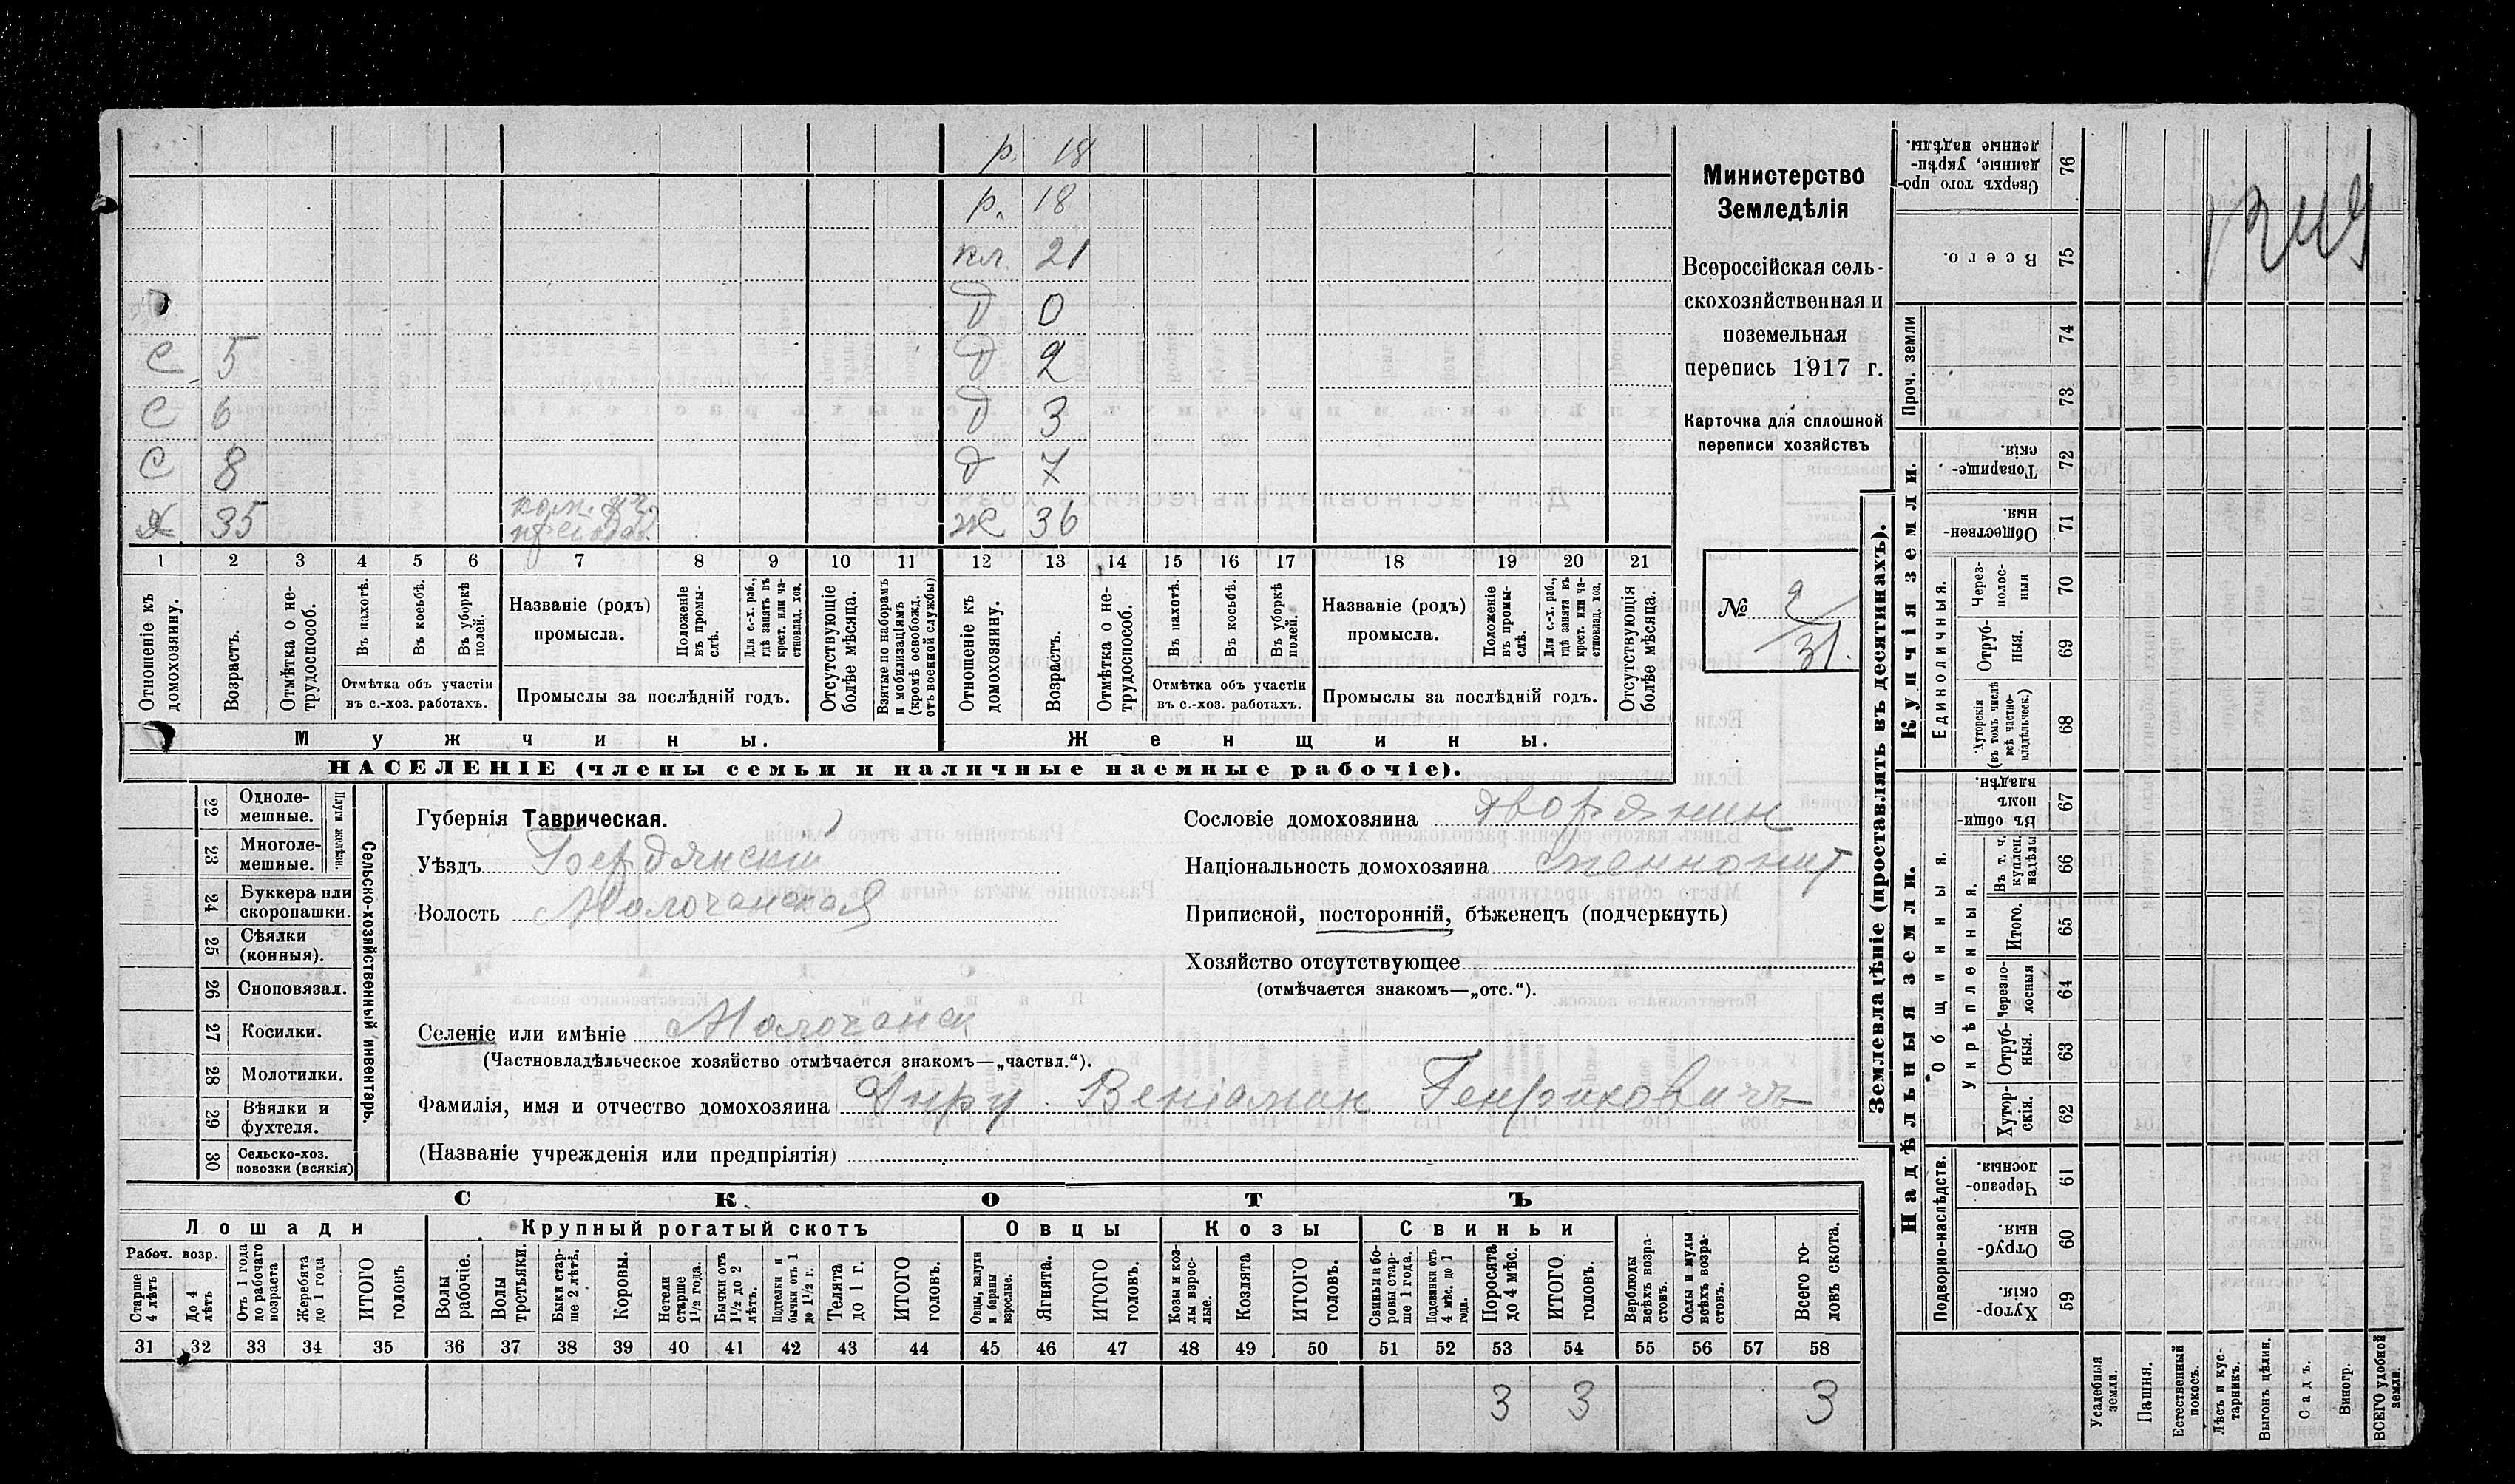 р. 18
р. 18
кл. 21
д 0
С 5 д 2
С 6 д 3
С 8 д 7
Я 35 ж 36
1 2 3 4 5 6 7 8 9 10 11 12 13 14 15 16 17 18 19 20 21
Отношеніе къ домохозяину.
Возрастъ.
Отмѣтка о не-трудоспособ.
Въ пахотѣ.
Въ косьбѣ.
Въ уборкѣ полей.
Отмѣтка объ участіи
въ с.-хоз. работахъ.
Названіе (родъ)
промысла.
Положеніе въ промы-слѣ.
Для с.-х. раб., гдѣ занятъ въ крест. или ча-стновлад. хоз.
Промыслы за послѣдній годъ.
Отсутствующіе болѣе мѣсяца.
Взятые по наборамъ и мобилизаціямъ (кромѣ освобожд. отъ военной службы)
Отношеніе къ домохозяину.
Возрастъ.
Отмѣтка о не-трудоспособ.
Въ пахотѣ.
Въ косьбѣ.
Въ уборкѣ полей.
Отмѣтка объ участіи
въ с.-хоз. работахъ.
Названіе (родъ)
промысла.
Положеніе въ промы-слѣ.
Для с.-х. раб., гдѣ занята въ крест. или ча-стновлад. хоз.
Промыслы за послѣдній годъ.
Отсутствующія болѣе мѣсяца.
Мужчины.
Женщины.
НАСЕЛЕНІЕ (члены семьи и наличные наемные рабочіе).
Министерство
Земледѣлія
Всероссійская сель-
скохозяйственная и
поземельная
перепись 1917 г.
Карточка для сплошной
переписи хозяйствъ
№ 2/31.
22 Одноле-мешные.
23 Многоле-мешные.
Плуги желѣзн.
24 Буккера или скоропашки.
25 Сѣялки (конныя).
26 Сноповязал.
27 Косилки.
28 Молотилки.
29 Вѣялки и фухтеля.
30 Сельско-хоз. повозки (всякія)
Сельско-хозяйственный инвентарь.
Губернія Таврическая.
Уѣздъ Бердянскій
Волость Молочанская
Селеніе или имѣніе Молочанск
(Частновладѣльческое хозяйство отмѣчается знакомъ—„частвл.“).
Сословіе домохозяина дворянин
Національность домохозяина меннонит
Приписной, посторонній, бѣженецъ (подчеркнуть)
Хозяйство отсутствующее
(отмѣчается знакомъ—„отс.“).
Фамилія, имя и отчество домохозяина Веніамин Генриховичъ
(Названіе учрежденія или предпріятія)
СКОТЪ
Лошади
Крупный рогатый скотъ
Овцы
Козы
Свиньи
Рабоч. возр.
Старше 4 лѣтъ
До 4 лѣтъ
Отъ 1 года до рабочаго возраста
Жеребята до 1 года
ИТОГО головъ
Волы рабочіе.
Волы третьяки.
Быки стар-ше 2 лѣтъ.
Коровы.
Нетели старше 1½ года.
Бычки отъ 1½ до 2 лѣтъ.
Подтелки и бычки отъ 1 до 1½ г.
Телята до 1 г.
ИТОГО головъ.
Овцы, валухи и бараны взрослые.
Ягнята.
ИТОГО головъ.
Козы и коз-лы взрос-лые.
Козлята
ИТОГО головъ.
Свиньи и бо-ровы стар-ше 1 года.
Подсвинки отъ 4 мѣс. до 1 года.
Поросята до 4 мѣс.
ИТОГО головъ.
Верблюды всѣхъ возра-стовъ.
Ослы и мулы всѣхъ возра-стовъ.
Всего го-ловъ скота.
31 32 33 34 35 36 37 38 39 40 41 42 43 44 45 46 47 48 49 50 51 52 53 54 55 56 57 58
3 3 3
Землевладѣніе (проставлять въ десятинахъ).
Надѣльныя земли.
Купчія земли.
Проч. земли
Подворно-наслѣдств.
Общинныя.
Укрѣпленныя.
Единоличныя.
Сверхъ того про-данные, укрѣп-ленные надѣлы. 76
Всего. 75
74
73
Товарище-скія. 72
Обществен-ныя. 71
Через-полос-ныя 70
Отруб-ныя. 69
Хуторскія (въ томъ числѣ всѣ частно-владѣльческ.) 68
Въ общин-номъ владѣн. 67
Въ т. ч. куплен. надѣлы 66
Итого. 65
Черезпо-лосныя 64
Отруб-ныя. 63
Хутор-скія. 62
Черезпо-лосныя. 61
Отруб-ныя. 60
Хутор-скія 59
Усадебныя земли.
Пашня.
Естественный покосъ.
Лѣсъ и кус-тарникъ.
Выгонъ цѣлин.
Садъ.
Виногр.
ВСЕГО удобной земли.